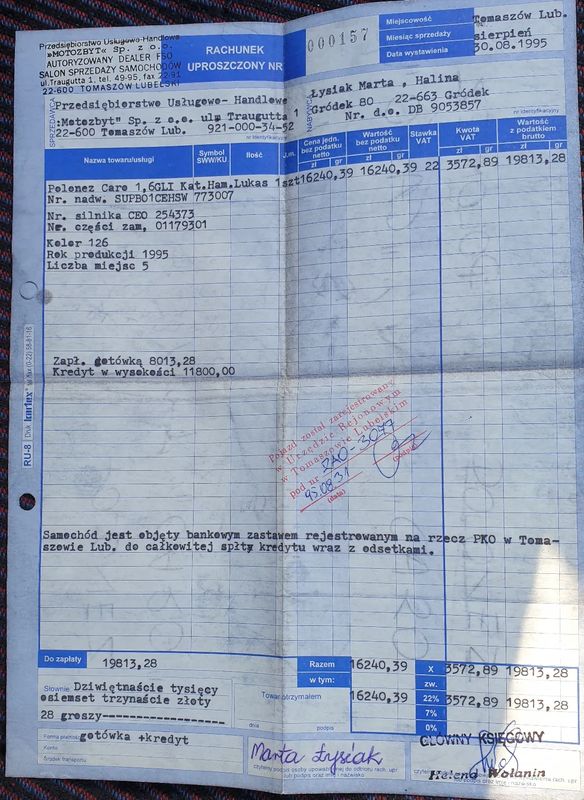 Przedsiębiorstwo Usługowo-Handlowe
»MOTOZBYT« Sp. z o.o.
AUTORYZOWANY DEALER FSO
SALON SPRZEDAŻY SAMOCHODÓW
ul.Traugutta 1, tel. 49-95, fax 22-91
22-600 TOMASZÓW LUBELSKI
RACHUNEK
UPROSZCZONY NR
000157
Miejscowość
Tomaszów Lub.
Miesiąc sprzedaży
sierpień
Data wystawienia
30.08.1995
SPRZEDAWCA
Przedsiębiorstwo Usługowo- Handlowe
:Motozbyt" Sp. z o.o. ulm Traugutta 1
22-600 Tomaszów Lub. 921-000-34-52
nr identyfikacyjny
NABYWCA
Łysiak Marta , Halina
Gródek 80 22-663 Gródek
Nr. d.o. DB 9053857
nr identyfikacyjny
Nazwa towaru/usługi
Symbol SWW/KU
Ilość
J.m.
Cena jedn. bez podatku netto
Wartość bez podatku netto
Stawka VAT
Kwota VAT
Wartość z podatkiem brutto
zł gr zł gr zł gr zł gr
Polonez Caro 1,6GLI Kat.Ham.Lukas 1szt 16240,39 16240,39 22 3572,89 19813,28
Nr. nadw. SUPB01CEHSW 773007
Nr. silnika CEO 254373
Nr. części zam, 01179301
Kolor 126
Rok produkcji 1995
Liczba miejsc 5
Zapł. gotówką 8013,28
Kredyt w wysokości 11800,00
Pojazd został zarejestrowany
w Urzędzie Rejonowym
w Tomaszowie Lubelskim
pod nr ZAO-3077
95.08.31
(data)
(podpis)
Samochód jest objęty bankowym zastawem rejestrowanym na rzecz PKO w Toma-
szowie Lub. do całkowitej spłty kredytu wraz z odsetkami.
RU-8
Druk kartex
Do zapłaty
19813,28
Razem
16240,39
X
3572,89 19813,28
w tym:
zw.
Słownie Dziwiętnaście tysięcy
osiemset trzynaście złoty
28 groszy--------------------
Towar otrzymałem
16240,39
22%
3572,89 19813,28
7%
0%
dnia
podpis
Forma płatności
gotówka +kredyt
Konto
Środek transportu
Marta Łysiak
czytelny podpis osoby upoważnionej do odbioru rach. upr
lub podpis oraz imię i nazwisko
GŁÓWNY KSIĘGOWY
Helena Wolanin